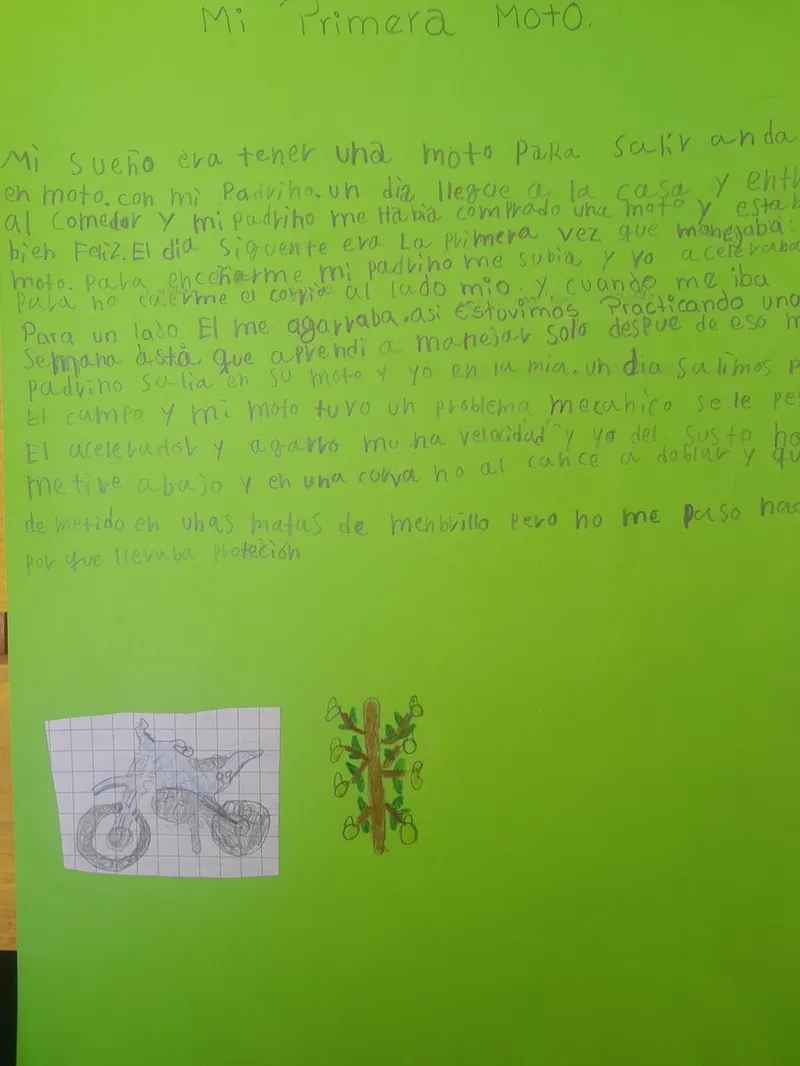 Mi Primera Moto.
Mi sueño era tener una moto para salir anda
en moto. con mi Padrino. un dia llegue a la casa y ent
al comedor y mi padrino me Habia comprado una moto y esta
bien Feliz. El dia siguente era La primera vez que manejaba.
moto. para enceñarme mi padrino me subia y yo aceleraba
para no caerme el corria al lado mio. y cuando me iba
Para un lado El me agarraba. asi Estuvimos Practicando una
semana asta que aprendi a manejar solo despue de eso m
padrino salia en su moto y yo en la mia. un dia salimos p
El campo y mi moto tuvo un problema mecanico se le pe
El acelerador y agarro mu ha velocidad y yo del susto no
me tire abajo y en una curva no al cance a doblar y qu
de metido en unas matas de menbrillo pero no me paso nad
por que llevaba proteción